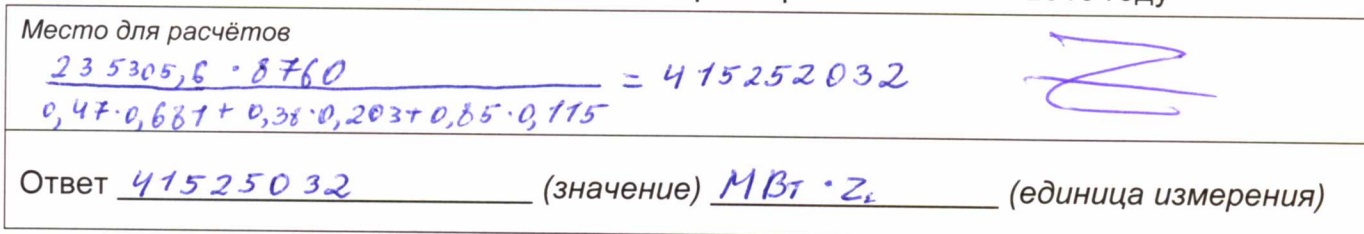 Место для расчётов
235305,6 · 8760
= 415252032
0,47·0,681 + 0,38·0,203 + 0,85·0,115
Ответ 41525032 (значение) МВт · г. (единица измерения)